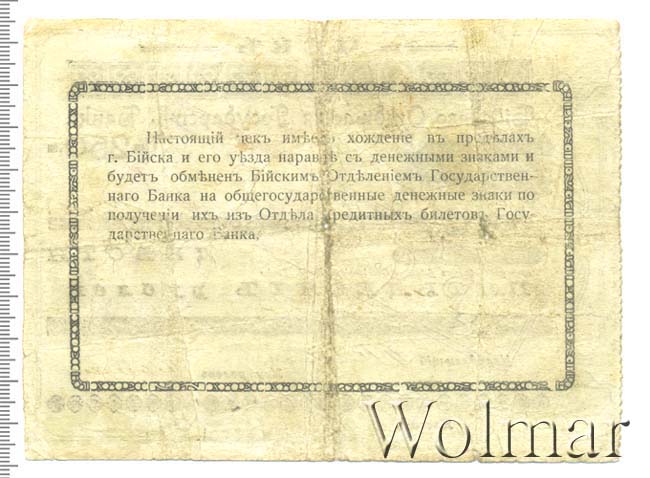 Настоящій чекъ имѣетъ хожденіе въ предѣлахъ
г. Бійска и его уѣзда наравнѣ съ денежными знаками и
будетъ обмѣненъ Бійскимъ Отдѣленіемъ Государствен-
наго Банка на общегосударственные денежные знаки по
полученіи ихъ изъ Отдѣла кредитныхъ билетовъ Госу-
дарственнаго Банка.
Wolmar